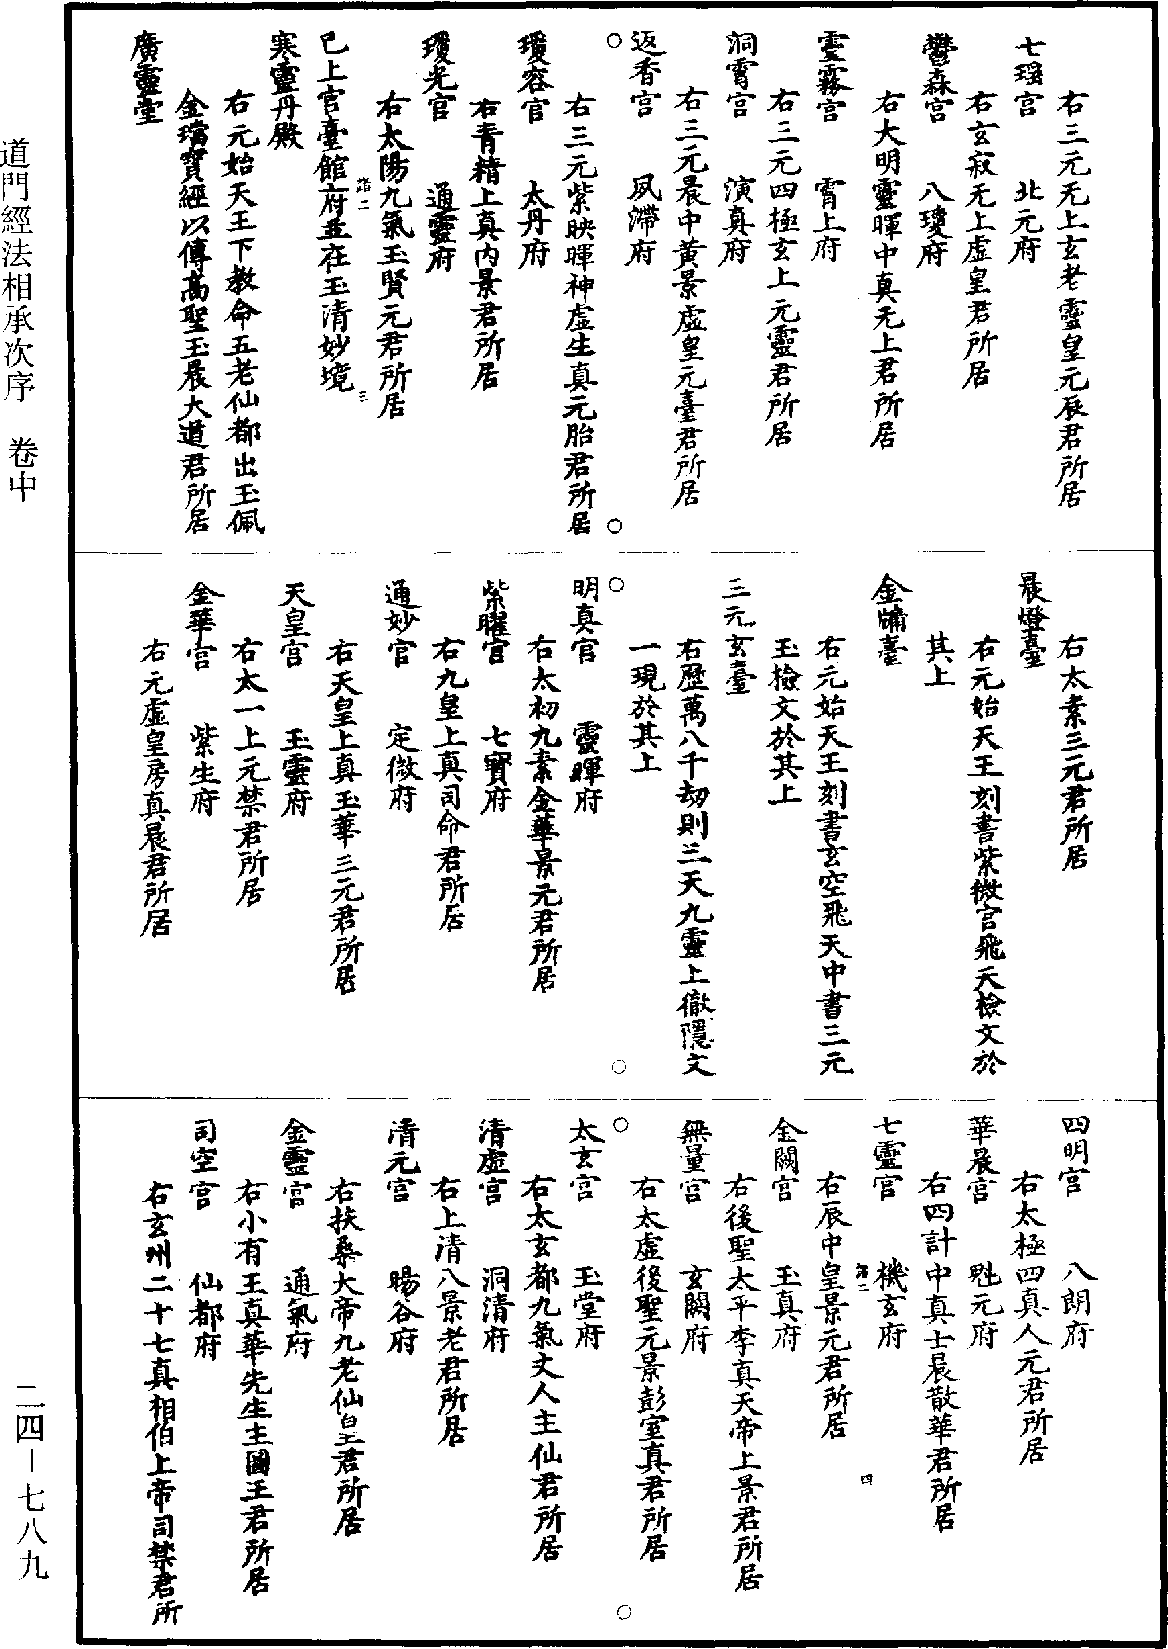 右三元无上玄老靈皇元辰君所居
七瑶宫　北元府
右玄寂无上虚皇君所居
鬱森宫　八瓊府
右大明靈暉中真无上君所居
靈霧宫　霄上府
右三元四極玄上元靈君所居
洞霄宫　演真府
右三元晨中黄景虚皇元臺君所居
返香宫　夙滯府
右三元紫映暉神虚生真元胎君所居
瓊容宫　太丹府
右青精上真内景君所居
瓊光宫　通靈府
右太陽九氣玉賢元君所居
已上宫臺館府並在玉清妙境
三
寒靈丹殿
右元始天王下教命五老仙都出玉佩
金璫寳經以傳高聖玉晨大道君所居
廣靈堂
右太素三元君所居
晨燈臺
右元始天王刻書紫微宫飛天檢文於
其上
金墉臺
右元始天王刻書玄空飛天中書三元
玉檢文於其上
三元玄臺
右歷萬八千劫則三天九靈上徹隱文
一現於其上
明真宫　靈暉府
右太初九素金華景元君所居
紫曜宫　七寳府
右九皇上真司命君所居
通妙宫　定微府
右天皇上真玉華三元君所居
天皇宫　玉靈府
右太一上元禁君所居
金華宫　紫生府
右元虚皇房真晨君所居
四明宫　八朗府
右太極四真人元君所居
華晨宫　魁元府
右四計中真士晨散華君所居
七靈宫　機玄府
右辰中皇景元君所居
四
金闕宫　玉真府
右後聖太平李真天帝上景君所居
無量宫　玄闕府
右太虚後聖元景彭室真君所居
太玄宫　玉堂府
右太玄都九氣丈人主仙君所居
清虚宫　洞清府
右上清八景老君所居
清元宫　暘谷府
右扶桑大帝九老仙皇君所居
金靈宫　通氣府
右小有王真華先生主圖玉君所居
司空宫　仙都府
右玄州二十七真相伯上帝司禁君所
道門經法相承次序　卷中
二四－七八九